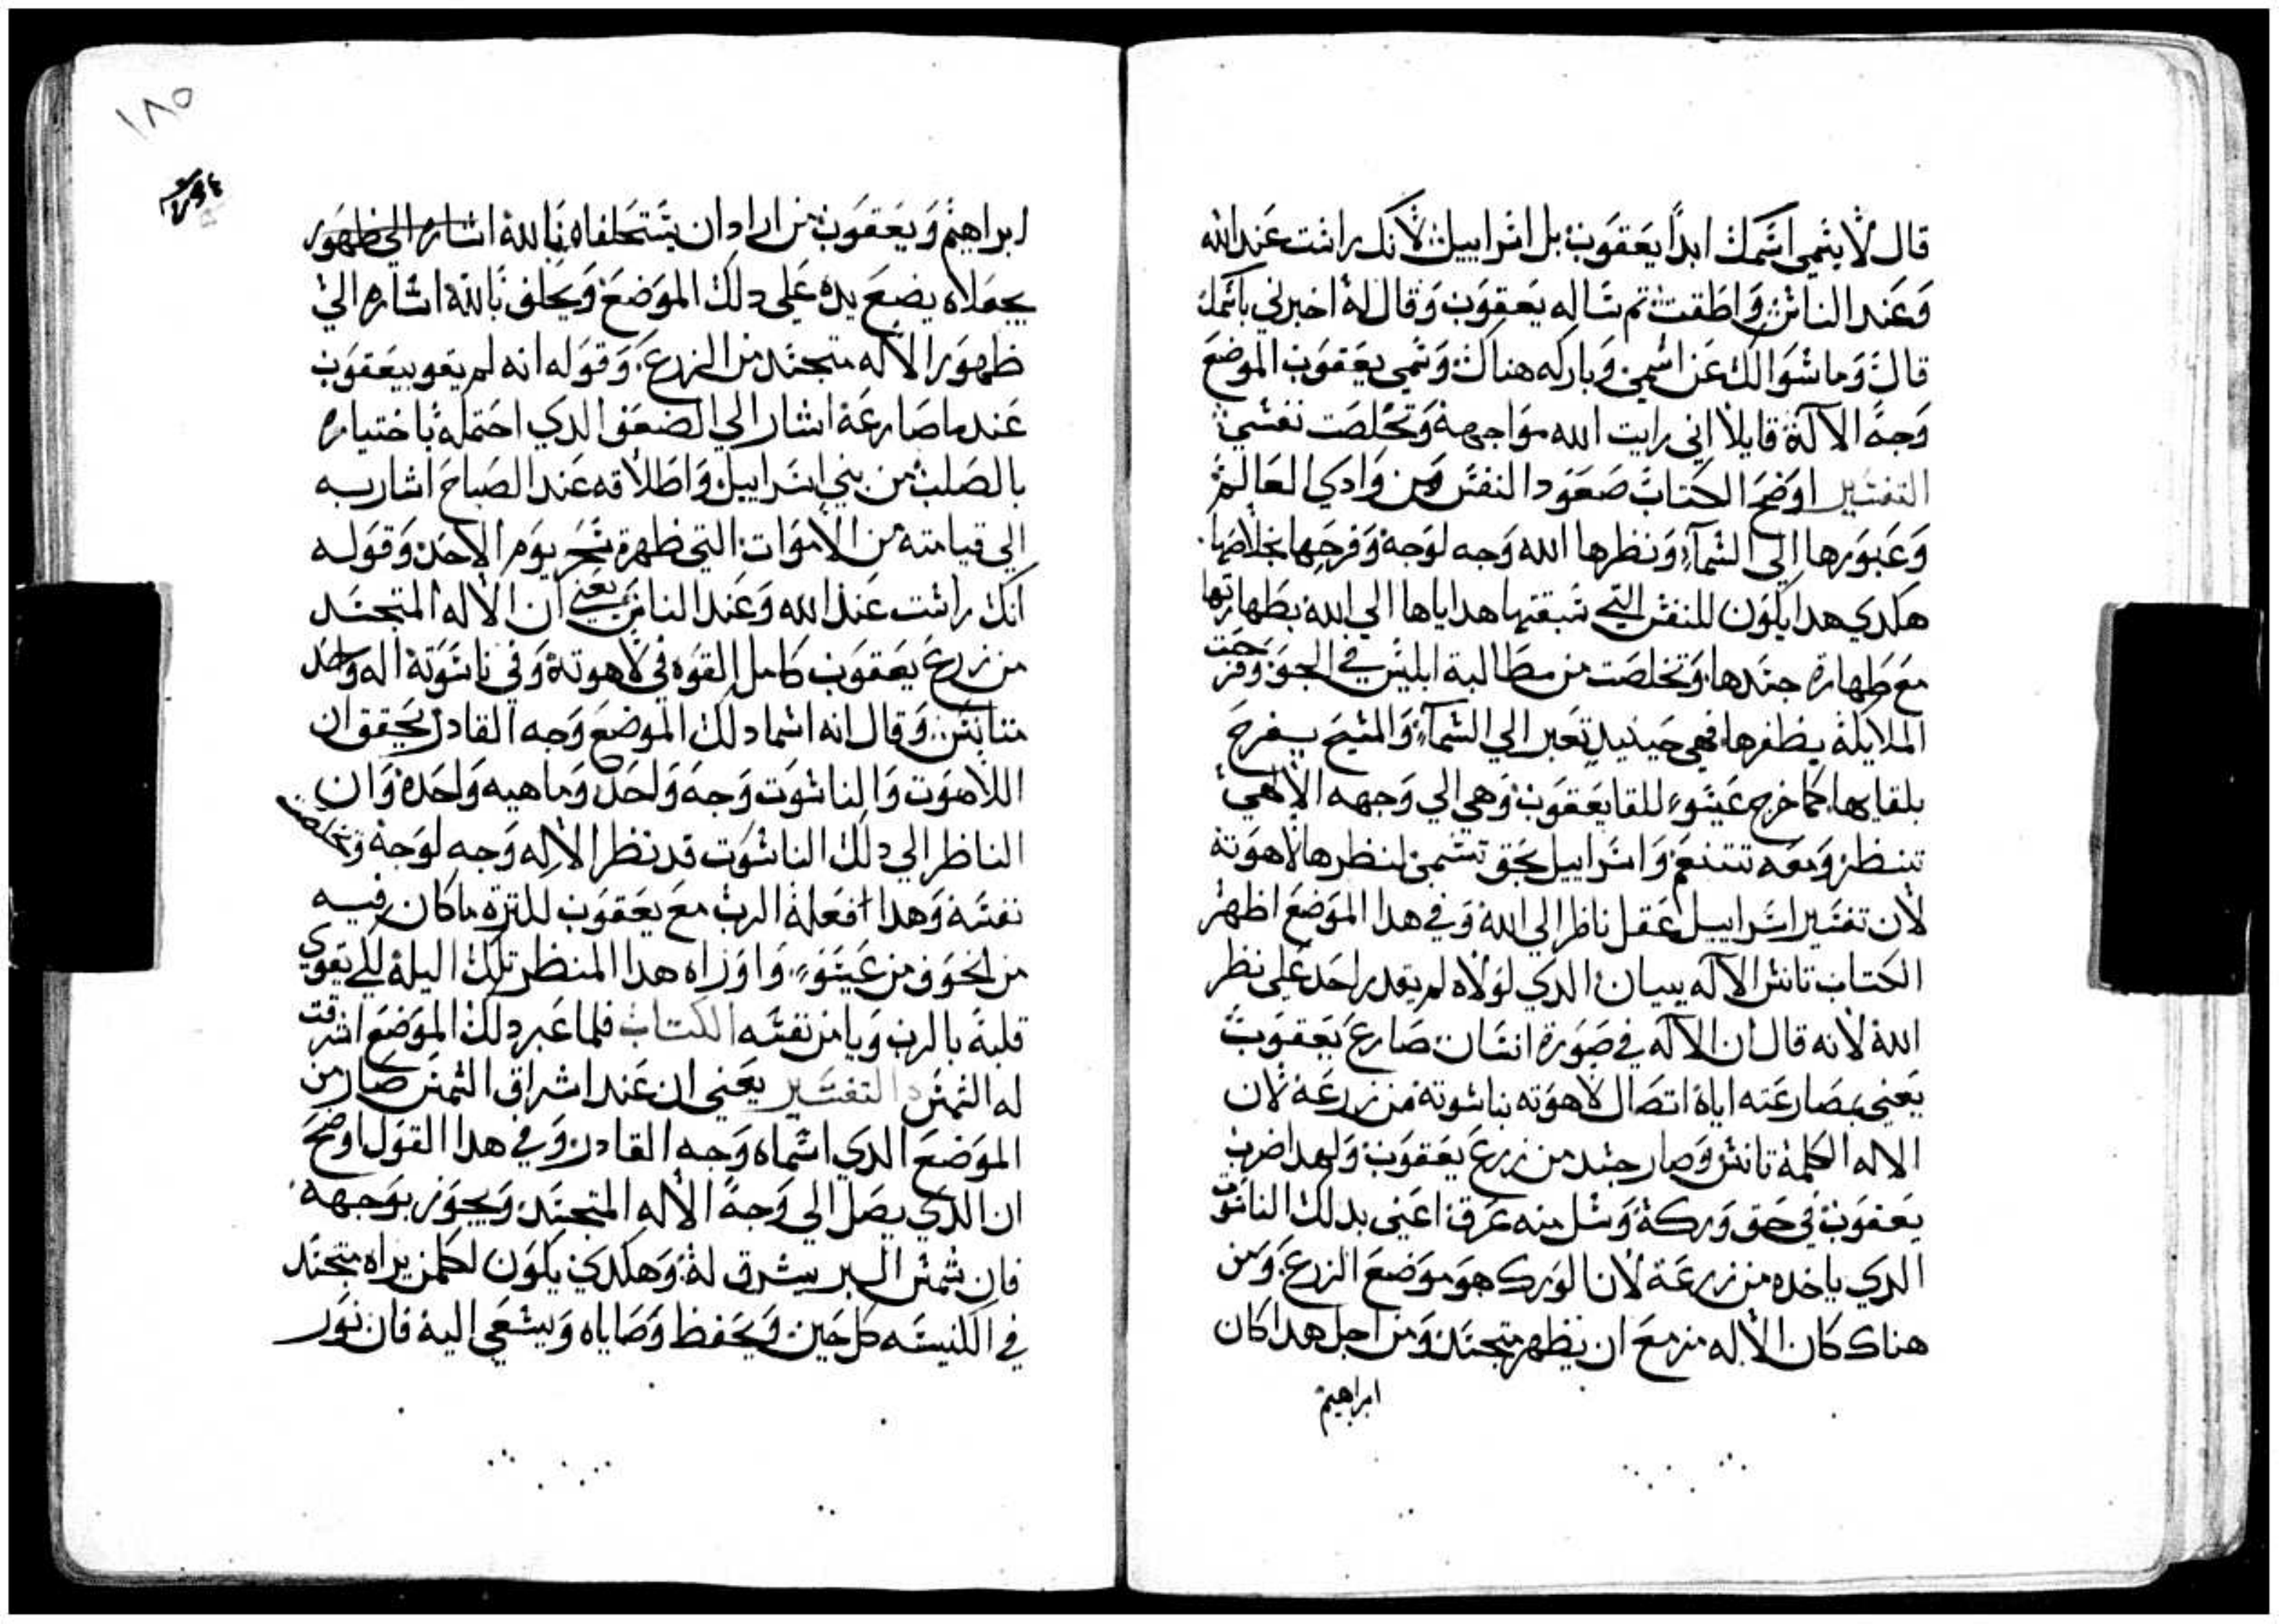 قال لا يسمي اسمك ابدًا يعقوب بل اسراييل لانك راست عند الله
وعند الناس واطقت تم ساله يعقوب وقال له اخبرني باسمك
قال وما سوالك عن اسمي وباركه هناك وسمي يعقوب الموضع
وجه الآلة قايلا اني رايت الله مواجهة وتخلصت نفسي
التفسير اوضح الكتاب صعود النفس من وادي العالم
وعبورها الى السمآء ونظرها الله وجه لوجه وفرحها بخلاصها
هكدي هدا يكون للنفس التي سبقتها هداياها الي الله بطهارتها
مع طهارة جسدها وتخلصت من مطالبة ابليس في الجو وفرحت
الملايكة بظفرها فهي حينيد تعبر الي السمآء والمسيح يفرح
بلقايها كما خرج عيسو للقا يعقوب وهي الي وجهه الالهي
تنظر ومعه تتنعم واسراييل بحق تسمي لنظرها لاهوته
لان تفسير اسراييل عقل ناظر الي الله وفي هدا الموضع اظهر
الكتاب تانس الآله ببيان الدي لولاه لم يقدر احد علي نظر
الله لانه قال ان الآله في صورة انسان صارع يعقوب
يعني بمصارعته اياه اتصال لاهوته بناسوته من زرعه لان
الاله الكلمة تانس وصار جسد من زرع يعقوب ولهدا ضرب
يعقوب في حق وركه وسل منه عرق اعني بدلك الناسوت
الدي ياخده من زرعه لان الورك هو موضع الزرع ومن
هناك كان الاله مزمع ان يظهر متجسد ومن اجل هدا كان
ابراهيم
١٨٥
ابراهيم ويعقوب من ارادان يستحلفاه بالله اشاره الي ظهور
يجعلاه يضع يده علي دلك الموضع ويحلف بالله اشاره الي
ظهور الاله متجسد من الزرع وقوله انه لم يقو بيعقوب
عندما صارعه اشار الي الضعف الدي احتمله باختياره
بالصلب من بني اسراييل واطلاقه عند الصباح اشار به
الى قيامته من الاموات التي ظهرة سحر يوم الاحد وقوله
انك راست عند الله وعند الناس يعني ان الاله المتجسد
من زرع يعقوب كامل القوه في لاهوته وفي ناسوته اله واحد
متانس وقال انه اسما دلك الموضع وجه القادر يحقق ان
اللاهوت والناسوت وجه واحد وماهيه واحده وان
الناظر الي دلك الناسوت قد نظر الاله وجه لوجه وتخلصت
نفسه وهدا افعله الرب مع يعقوب لكثرة ما كان فيه
من الخوف من عيسو واوراه هدا المنظر تلك اليلة لكي يقوي
قلبه بالرب ويامن نفسه الكتاب فلما عبر دلك الموضع اشرقت
له الشمس التفسير يعني ان عند اشراق الشمس صار من
الموضع الدي اسماه وجه القادر وفي هدا القول اوضح
ان الدي يصل الي وجه الاله المتجسد ويجوز بوجهه
فان شمس البر يشرق له وهكدي يكون لكلمن يراه متجسد
في الكنيسه كل حين ويحفظ وصاياه ويسعي اليه فان نور